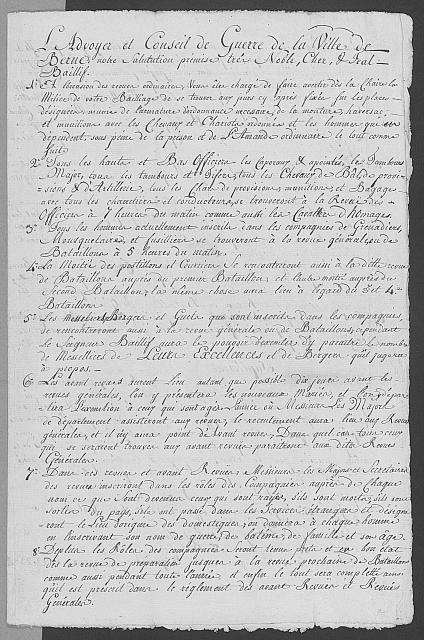 L'Advoyer et Conseil de Guerre de la Ville de
Berne notre Salutation premise très Noble, Cher, & Feal
Baillif.
1° A l'occasion des revues ordinaires Vous êtes chargé de faire avertir dès la Chaire la
Milice de votre Bailliage de se trouver aux jours cy après fixés sur les places
designées munie de l'armature d'ordonnance necessaire de la monture, havresac,
et munitions avec les Chevaux et Chariots ordonnés et les hommes que en
dependent, sous peine de la prison et de l'Amande ordinaire le tout comme
suit
2° Tous les hauts et Bas Officiers les Caporaux & apointés, les Tambours
Major, tous les tambours et Fifres, tous les Chevaux de Bats de provi-
sions & d'Artillerie, tous les Chars de provisions, munitions, et Bagages
avec tous les charretiers et conducteurs, se trouveront à la Revue des
Officiers à 7 heures du matin comme aussi les Cavaliers d'Homages.
3° Tous les hommes actuellement inscrits dans les compagnies de Grenadiers,
Mousquetaires, et fusiliers se trouveront à la revue générale ou de
Bataillons à 5 heures du matin.
4° La Moitié des postillons et Courriers se rencontreront aussi à la ditte revue
de Bataillons auprès du premier Bataillon, et l'autre moitié auprès du
second Bataillon, la même chose aura lieu à l'egard du 3e et 4e
Bataillon
5° Les Messeliers Bergers et Guets que sont inscrits dans les compagnies,
se rencontreront aussi à la revue générale ou de Bataillons, cependant
le Seigneur Baillif aura le pouvoir d'exemter d'y paraître le nombre
de Messeliers de Leurs Excellences et de Bergers qu'il jugera
à propos.
6° Les avant revues auront Lieu autant que possible dix jours avant les
revues générales, l'on y présentera les nouveaux Mariés, et l'on depar-
tira l'exemtion à ceux qui sont agés l'année où Messieurs Les Majors
de departement assisteront aux revues, le recrutement aura lieu aux Revues
générales, et il n'y aura point de avant revues, Dans quel cas tous ceux
que se seraient trouvés aux avant revues paraitront aux dites Revues
Générales.
7° Dans ces revues et avant Revues Messieurs les Majors et Secretaires
des revues inscriront dans les rôles des Compagnies auprès de chaque
nom ce que sont devenus ceux qui sont rayés, s'ils sont morts, s'ils sont
sortis du pays, s'ils ont passé dans les Services étrangers et désigne-
ront le Lieu d'origine des domestiques, on donnera à chaque homme
en l'inscrivant son nom de guerre, de batême, de famille et son âge.
8° Depuis les Rôles des compagnies seront tenus prets et en bon état
dès la revue de preparation jusques à la revue prochaine de Bataillons
comme aussi pendant toute l'année et enfin le tout sera complette ainsi
qu'il est prescrit dans le règlement des avant Revues et Revues
Générales.